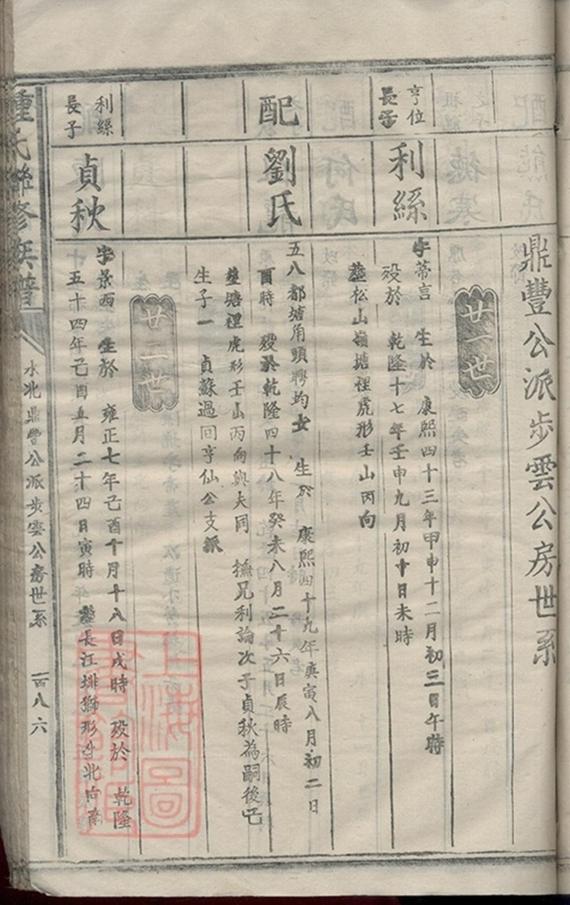 鼎豐公派步雲公房世系
廿一世
亨位
長子
利綠
字蒂言 生於 康熙四十三年甲申十二月初三日午時
殁於 乾隆十七年壬申九月初十日未時
塟松山嶺塘裡虎形壬山丙向
配
劉氏
五八都塘角頭樗均女 生於 康熙四十九年庚寅八月初二日
酉時 殁於乾隆四十八年癸未八月二十六日辰時
塟塘裡虎形壬山丙向與夫同 撫兄利論次子貞秋為嗣後乙
生子一 貞蘇過回亨仙公支派
廿二世
利綠
長子
貞秋
字景西 生於 雍正七年己酉十月十八日戌時 殁於 乾隆
五十四年己酉五月二十四日寅時 塟長江排獅形
氏聯修族譜
水北鼎豐公派步雲公房世系
一百八六
上海圖